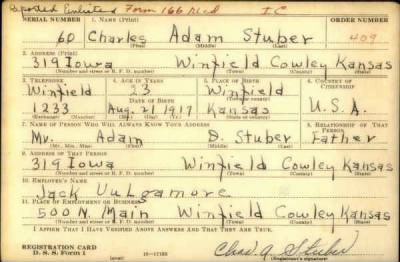 Reported Enlisted Form 166 Recd I C
SERIAL NUMBER 1. NAME (Print) ORDER NUMBER
60 Charles Adam Stuber 409
(First) (Middle) (Last)
2. ADDRESS (Print)
319 Iowa Winfield Cowley Kansas
(Number and street or R. F. D. number) (Town) (County) (State)
3. TELEPHONE 4. AGE IN YEARS 5. PLACE OF BIRTH 6. COUNTRY OF CITIZENSHIP
Winfield 23 Winfield
DATE OF BIRTH (Town or county)
1233 Aug. 21 1917 Kansas U.S.A.
(Exchange) (Number) (Mo.) (Day) (Yr.) (State or country)
7. NAME OF PERSON WHO WILL ALWAYS KNOW YOUR ADDRESS 8. RELATIONSHIP OF THAT PERSON
Mr. Adam D. Stuber Father
(Mr., Mrs., Miss) (First) (Middle) (Last)
9. ADDRESS OF THAT PERSON
319 Iowa Winfield Cowley Kansas
(Number and street or R. F. D. number) (Town) (County) (State)
10. EMPLOYER'S NAME
Jack Vulgamore
11. PLACE OF EMPLOYMENT OR BUSINESS
500 N. Main Winfield Cowley Kansas
(Number and street or R. F. D. number) (Town) (County) (State)
I AFFIRM THAT I HAVE VERIFIED ABOVE ANSWERS AND THAT THEY ARE TRUE.
REGISTRATION CARD
D. S. S. Form 1 Chas. A Stuber
(Registrant's signature)